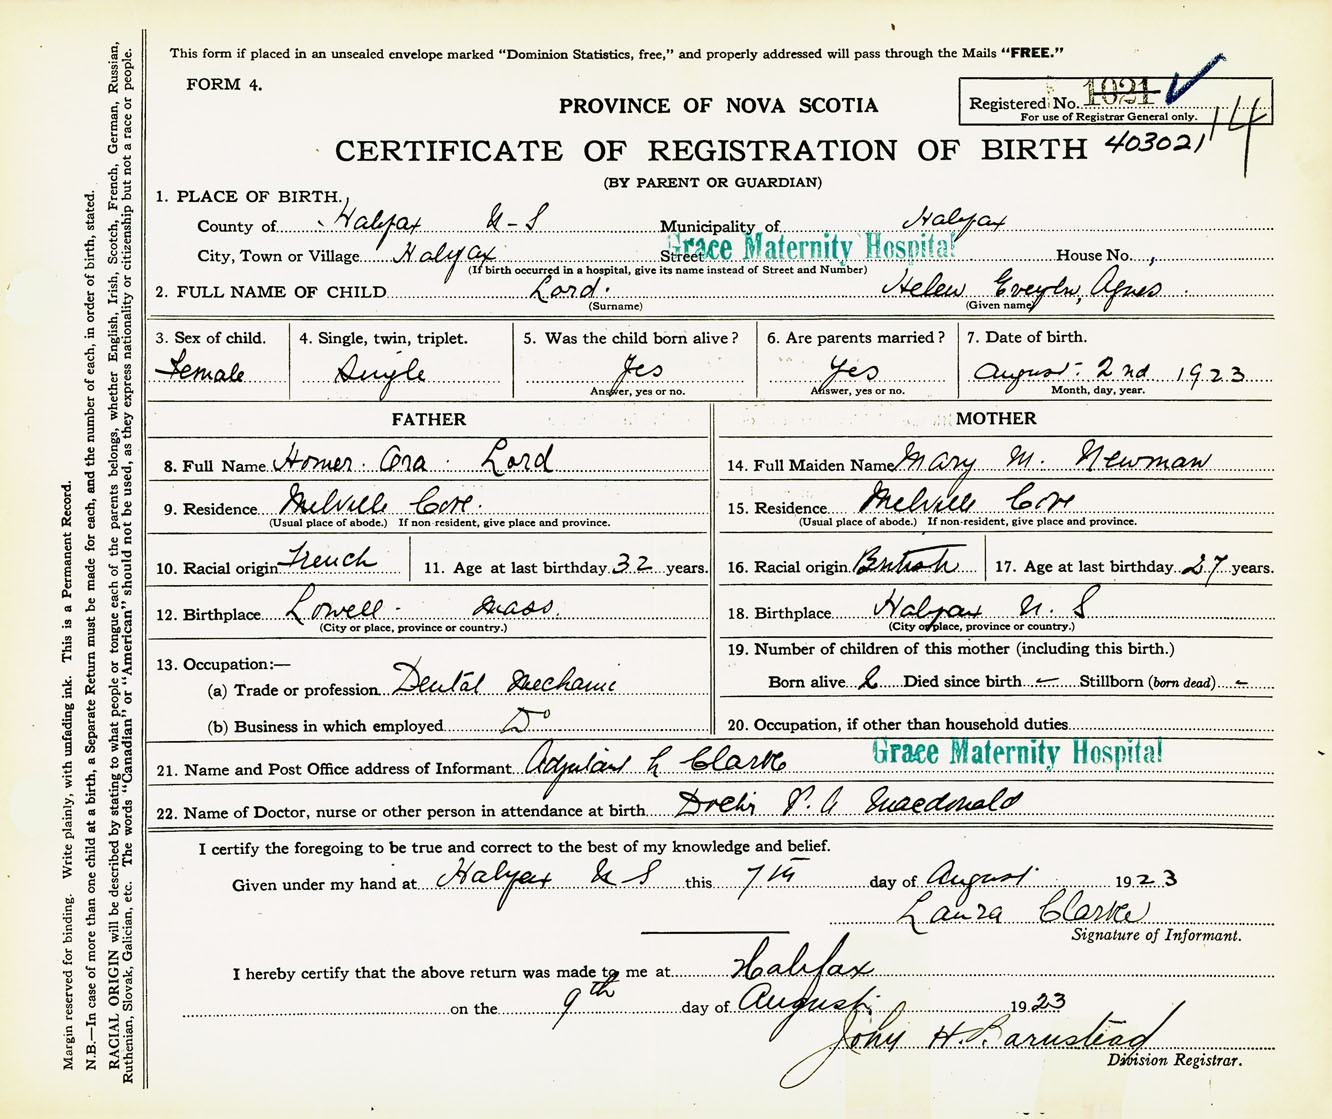 This form if placed in an unsealed envelope marked "Dominion Statistics, free," and properly addressed will pass through the Mails "FREE."
FORM 4.
Registered No. 1021
For use of Registrar General only.
14
PROVINCE OF NOVA SCOTIA
CERTIFICATE OF REGISTRATION OF BIRTH 403021
(BY PARENT OR GUARDIAN)
1. PLACE OF BIRTH.
County of Halifax N-S Municipality of Halifax
City, Town or Village Halifax Street Grace Maternity Hospital House No.
(If birth occurred in a hospital, give its name instead of Street and Number)
2. FULL NAME OF CHILD Lord Helen Evelyn, Agnes
(Surname) (Given name)
3. Sex of child. 4. Single, twin, triplet. 5. Was the child born alive? 6. Are parents married? 7. Date of birth.
Female Single Yes Yes August 2nd 1923
Answer, yes or no. Answer, yes or no. Month, day, year.
FATHER MOTHER
8. Full Name Homer Ora Lord 14. Full Maiden Name Mary M. Newman
9. Residence Melville Cove. 15. Residence Melville Cove
(Usual place of abode.) If non-resident, give place and province. (Usual place of abode.) If non-resident, give place and province.
10. Racial origin French 11. Age at last birthday 32 years. 16. Racial origin British 17. Age at last birthday 27 years.
12. Birthplace Lowell - Mass. 18. Birthplace Halifax N. S
(City or place, province or country.) (City or place, province or country.)
13. Occupation:— 19. Number of children of this mother (including this birth.)
(a) Trade or profession Dental Mechanic Born alive 2 Died since birth – Stillborn (born dead) –
(b) Business in which employed Do 20. Occupation, if other than household duties
21. Name and Post Office address of Informant Adjutant L Clarke Grace Maternity Hospital
22. Name of Doctor, nurse or other person in attendance at birth Doctor P. A Macdonald
I certify the foregoing to be true and correct to the best of my knowledge and belief.
Given under my hand at Halifax N S this 7th day of August 1923
Laura Clarke
Signature of Informant.
I hereby certify that the above return was made to me at Halifax
on the 9th day of August 1923
John H. Barnstead
Division Registrar.
Margin reserved for binding. Write plainly, with unfading ink. This is a Permanent Record.
N.B.—In case of more than one child at a birth, a Separate Return must be made for each, and the number of each, in order of birth, stated.
RACIAL ORIGIN will be described by stating to what people or tongue each of the parents belongs, whether English, Irish, Scotch, French, German, Russian,
Ruthenian, Slovak, Galician, etc. The words "Canadian" or "American" should not be used, as they express nationality or citizenship but not a race or people.